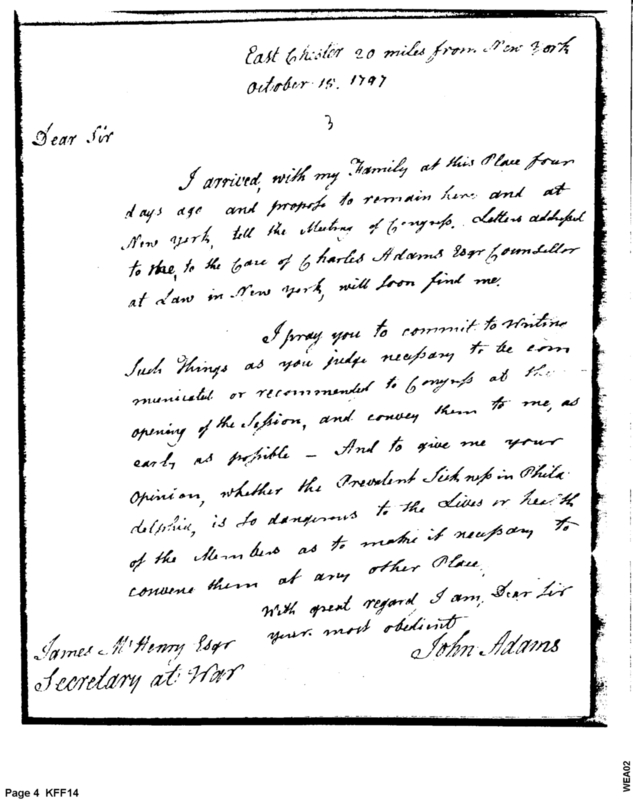 East Chester 20 miles from New York
October 15. 1797
3
Dear Sir
I arrived, with my Family at this Place four
days ago and propose to remain here and at
New York, till the Meeting of Congress. Letters addressed
to me, to the Care of Charles Adams Esqr Counsellor
at Law in New York, will soon find me.
I pray you to commit to writing
Such Things as you judge necessary to be com
municated or recommended to Congress at the
opening of the Session, and convey them to me, as
early as possible — And to give me your
opinion, whether the Prevalent Sickness in Phila
delphia, is so dangerous to the Lives or health
of the Members as to make it necessary to
convene them at any other Place.
With great regard I am, Dear Sir
your most obedient
John Adams
James McHenry Esqr
Secretary at War
Page 4 KFF14
WEA02